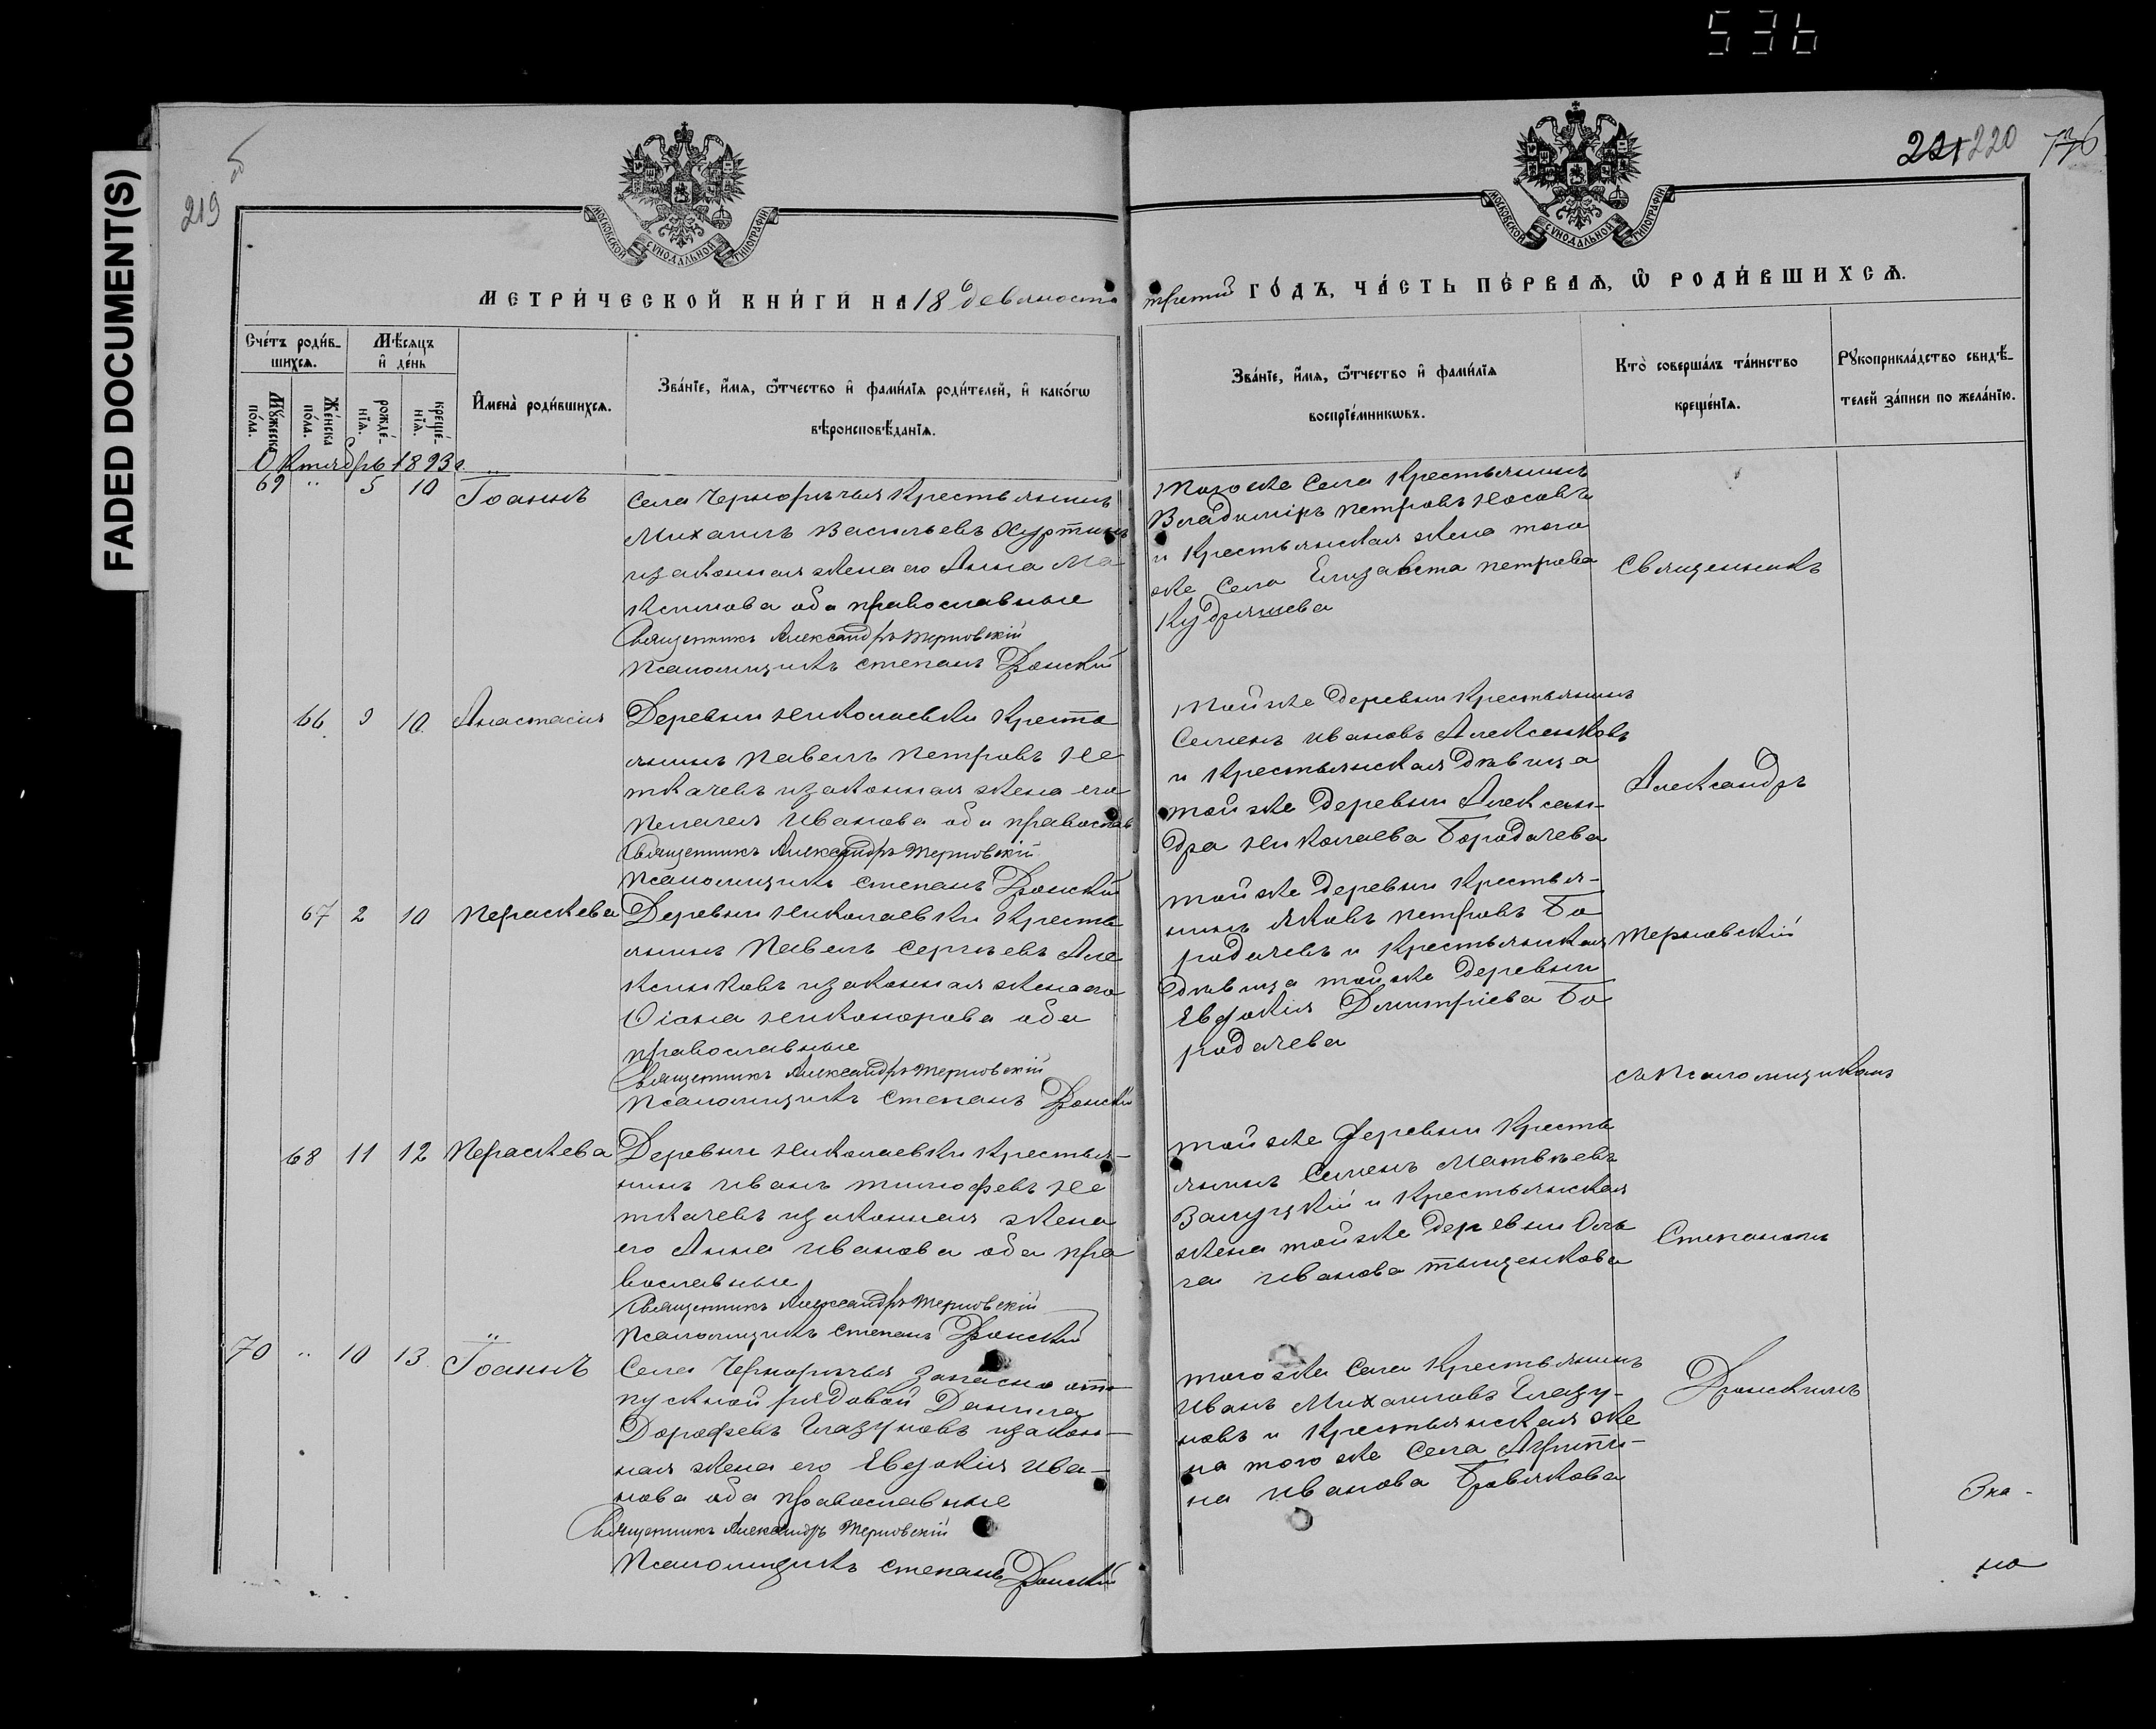 536
FADED DOCUMENT(S)
219 об
221 220 736
МОСКОВСКОЙ СѴНОДАЛЬНОЙ ТИПОГРАФІИ
МОСКОВСКОЙ СѴНОДАЛЬНОЙ ТИПОГРАФІИ
МЕТРИ́ЧЕСКОЙ КНИ́ГИ НА 18 девяносто
третій ГО́ДЪ, ЧА́СТЬ ПЕ́РВАѦ, Ѿ РОДИ́ВШИХСѦ.
Сче́тъ роди́в-
шихсѧ.
Мѣ́сѧцъ
и҆ де́нь
Мꙋ́жеска по́ла.
Же́нска по́ла.
рожде́-
нїѧ.
креще́-
нїѧ.
И҆мена̀ роди́вшихсѧ.
Зва́нїе, и҆́мѧ, ѻ҆́тчество и҆ фами́лїѧ роди́телей, и҆ како́гѡ
вѣроисповѣ́данїѧ.
Зва́нїе, и҆́мѧ, ѻ҆́тчество и҆ фами́лїѧ
воспрїе́мникѡвъ.
Кто̀ соверша́лъ та́инство
креще́нїѧ.
Рꙋкоприкла́дство свидѣ́-
телей за́писи по жела́нїю.
Октябрь 1893 г.
69 " 5 10 Іоаннъ
Села Чернорѣчья Крестьянинъ
Михаилъ Васильевъ
и законная жена его Анна Ма
ксимова оба православные
Священникъ Александръ Терновскій
Псаломщикъ Степанъ Донской
Того же Села Крестьянинъ
Владиміръ Петровъ Носовъ
и Крестьянская жена того
же Села Елизавета Петрова
Кудряшева
Священникъ
66 9 10 Анастасія
Деревни Николаевки Кресть
янинъ Павелъ Петровъ Не
ткачевъ и законная жена его
Пелагея Иванова оба православ
Священникъ Александръ Терновскій
Псаломщикъ Степанъ Донской
Той же Деревни Крестьянинъ
Семенъ Ивановъ Алексенковъ
и Крестьянская Дѣвица
той же Деревни Алексан-
дра Николаева Бородачева
Александръ
67 2 10 Пераскева
Деревни Николаевки Кресть
янинъ Павелъ Сергѣевъ Але
ксенковъ и законная жена его
Никонорова оба
православные
Священникъ Александръ Терновскій
Псаломщикъ Степанъ Донской
Той же Деревни Крестья-
нинъ Яковъ Петровъ Бо
родачевъ и Крестьянская
Дѣвица той же Деревни
Евдокія Димитріева Бо
родачева
Терновскій
съ Псаломщикомъ
68 11 12 Пераскева
Деревни Николаевки Крестья-
нинъ Иванъ Тимофевъ Не
ткачевъ и законная жена
его Анна Иванова оба пра
вославные
Священникъ Александръ Терновскій
Псаломщикъ Степанъ Донской
Той же Деревни Кресть
янинъ Семенъ Матвѣевъ
Залуцкій и Крестьянская
жена той же Деревни Оль
га Иванова Тыщенкова
Степаномъ
70 " 10 13 Іоаннъ
Села Чернорѣчья Запасно от-
пускной рядовой Данила
Дорофевъ Глазуновъ и закон-
ная жена его Евдокія Ива-
нова оба православные
Священникъ Александръ Терновскій
Псаломщикъ Степанъ Донской
Того же Села Крестьянинъ
Иванъ Михаиловъ Глазу-
новъ и Крестьянская же
на того же Села Агрипи-
на Иванова
Донскимъ